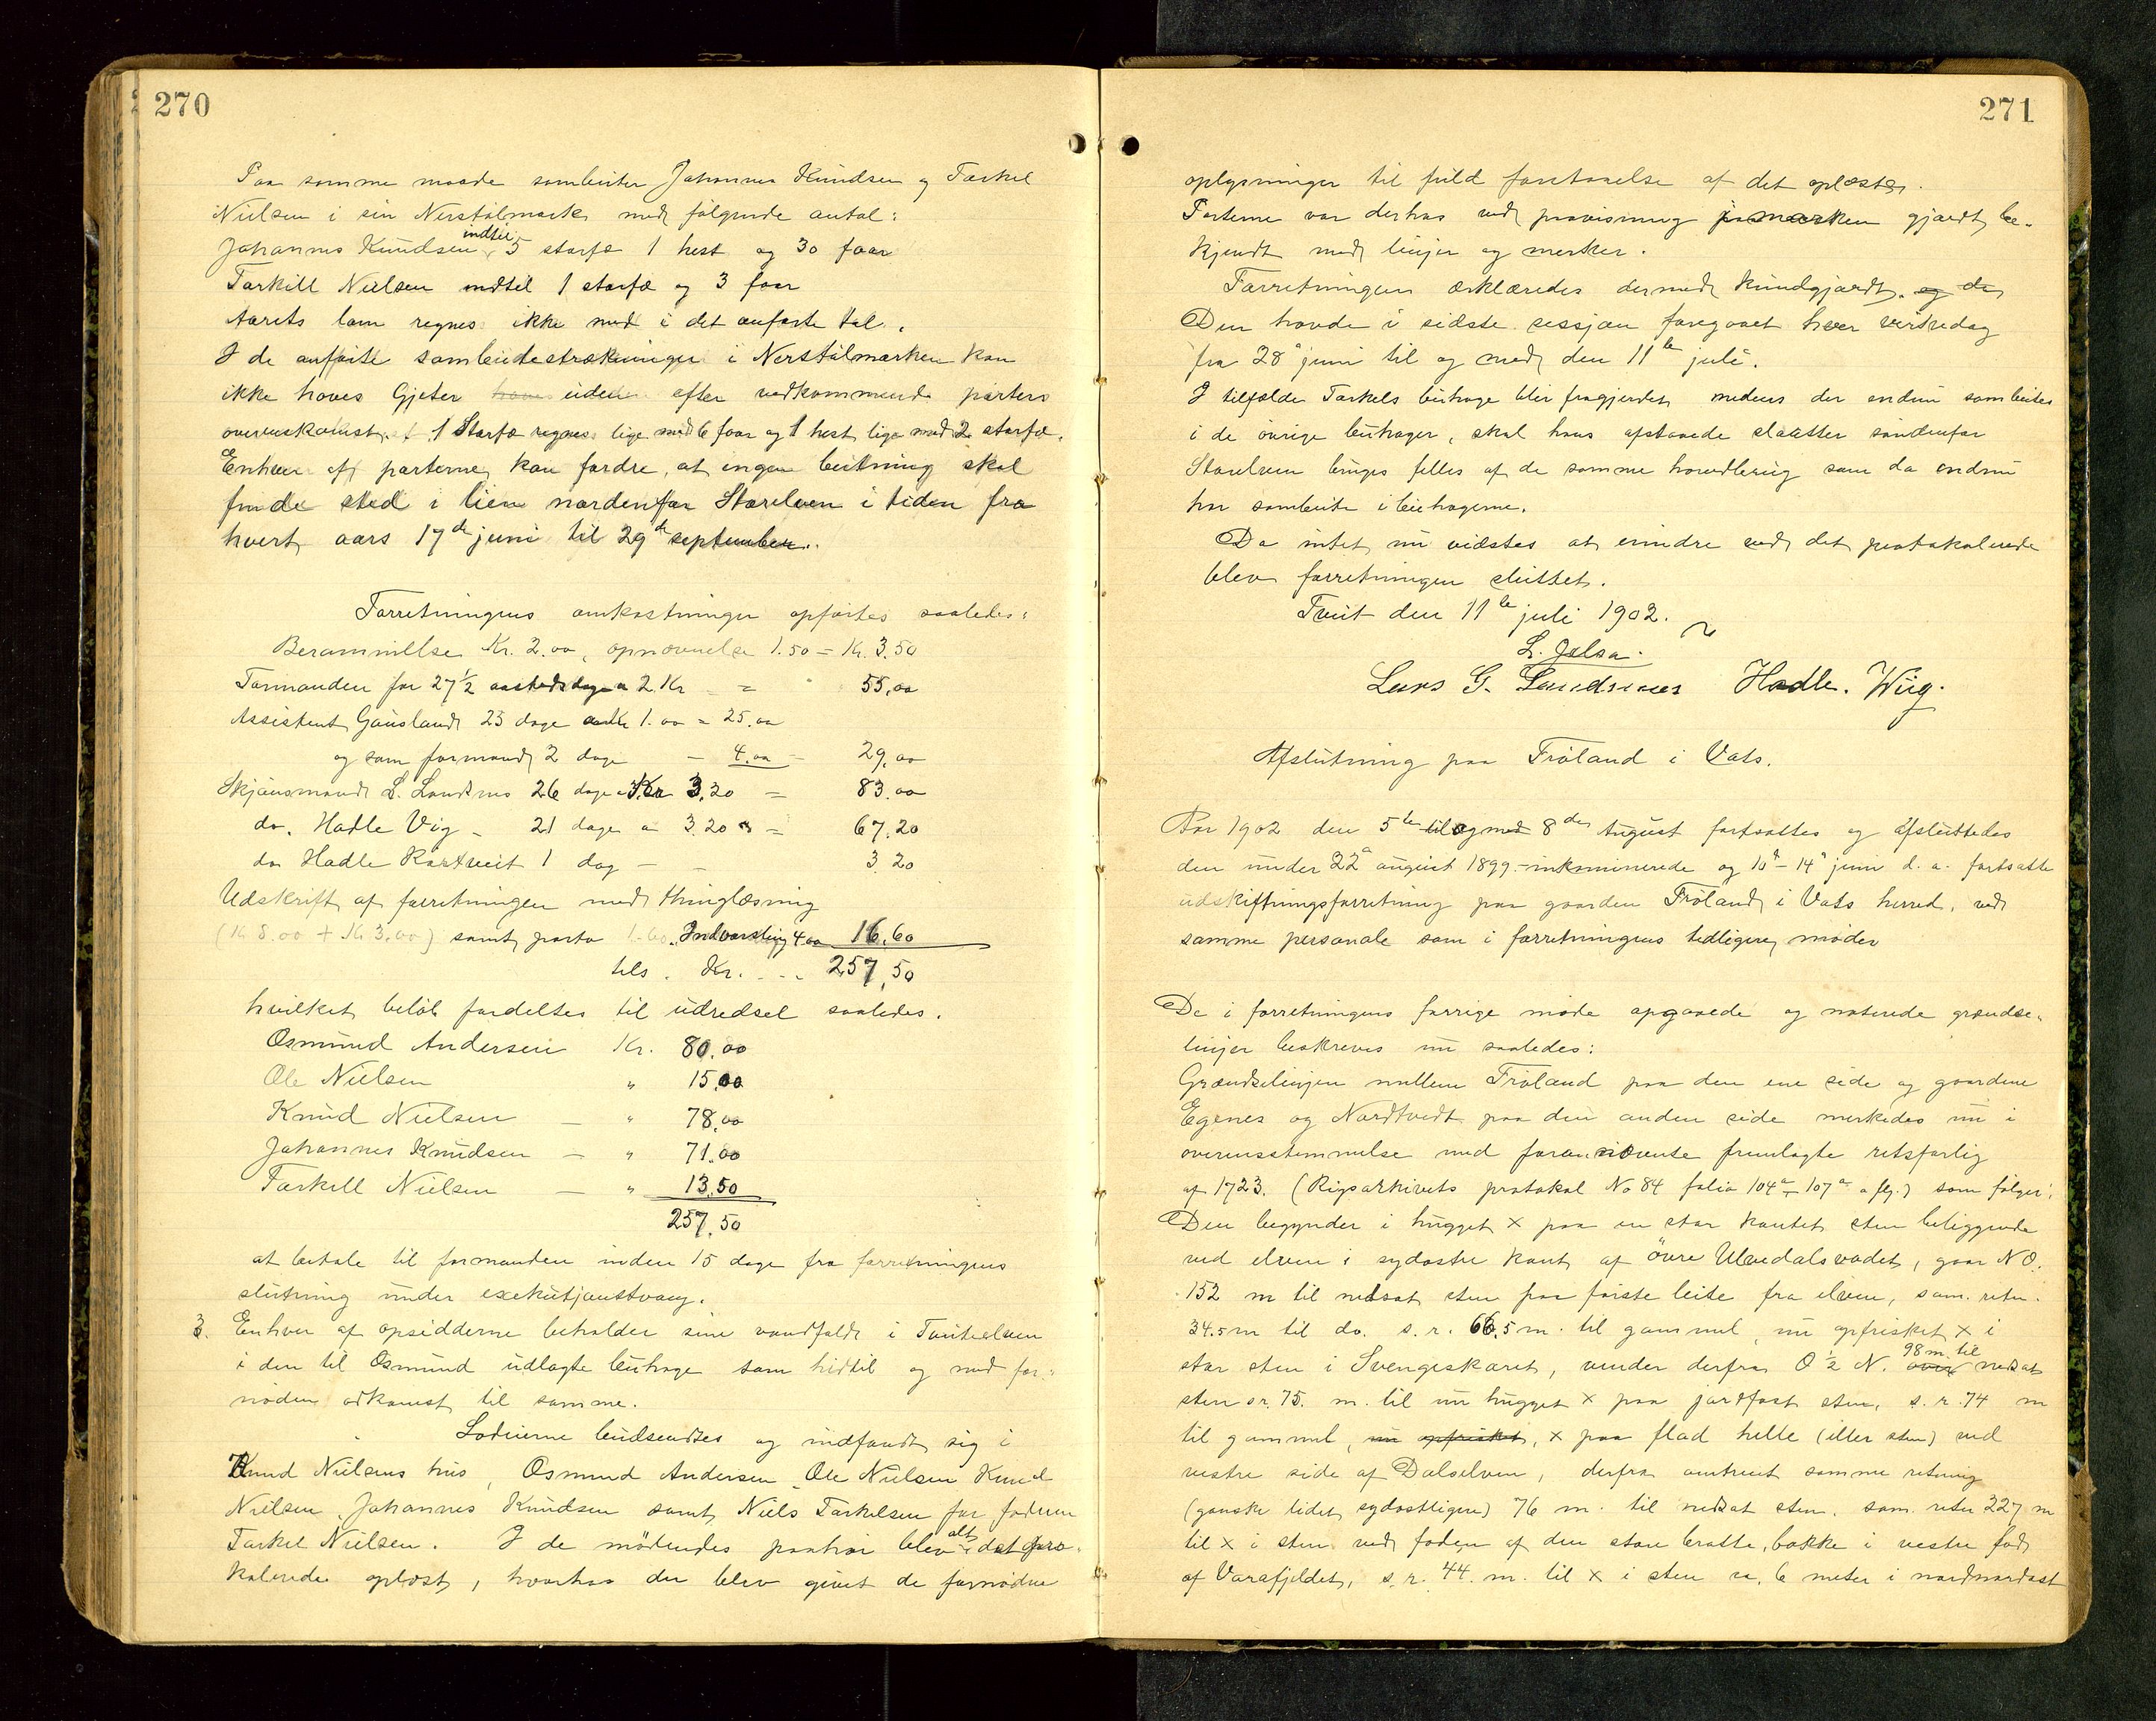 270
Paa samme maade sambeiter Johannes Knudsen og Torkel
Nielsen i sin Nerstølmark med følgende antal:
Johannes Knudsen indtil 5 storfæ 1 hest og 30 faar
Torkill Nielsen indtil 1 storfæ og 3 faar
Aarets lam regnes ikke med i det anførte tal.
I de anførte sambeitestrækninger i Nerstølmarken kan
ikke haves Gjeter uden efter vedkommende parters
overenskomst. 1 Storfæ regnes lige med 6 faar og 1 hest lige med 2 storfæ.
Enhver af parterne kan fordre, at ingen beitning skal
finde sted i lien nordenfor Storelven i tiden fra
hvert aars 17de juni til 29de september.
Forretningens omkostninger opførtes saaledes:
Berammelse Kr. 2.00, opnævnelse 1.50 = Kr. 3.50
Formanden for 27½ aastedsdage a 2 Kr = 55,00
Assistent Gausland 25 dage a Kr 1.00 = 25.00
og som formand 2 dage - 4.00 - 29,00
Skjønsmand L. Landsnes 26 dage a Kr 3.20 = 83.00
do. Hadle Vig - 21 dage a 3.20 = 67.20
do Hadle Kartveit 1 dag - 3 20
Udskrift af forretningen med thinglæsning
(Kr 8.00 + Kr 3.00) samt porto 1.60. Indvarsling 4.00 16,60
tils. Kr. - - - 257,50
hvilket beløb fordeltes til udredsel saaledes.
Osmund Andersen Kr. 80.00
Ole Nielsen " 15.00
Knud Nielsen - " 78,00
Johannes Knudsen - " 71.00
Torkell Nielsen - " 13.50
257.50
at betale til formanden inden 15 dage fra forretningens
slutning under exekutjonstvang.
3. Enhver af opsidderne beholder sine vandfald i Tveitelven
i den til Osmund udlagte beithage som hidtil og med for-
nøden adkomst til samme.
Lodeierne beudsendtes og indfandt sig i
Knud Nielsens hus, Osmund Andersen, Ole Nielsen Knud
Nielsen, Johannes Knudsen samt Niels Torkelsen for faderen
Torkel Nielsen. I de mødendes paahør blev alt det proto-
kolerede oplæst, hvorhos der blev givet de fornødne
271
oplysninger til fuld forstaaelse af det oplæste.
Parterne var derhos ved paavisning i marken gjordt be-
kjendt med linjer og merker.
Forretningen erklæredes dermed kundgjordt. og de
Den havde i sidste sessjon foregaaet hver virkedag
fra 28de juni til og med den 11te juli.
I tilfælde Torkels beithage blir fragjerdet medens der endnu sambeites
i de øvrige beithager, skal hans afstaaede slaatter søndenfor
Storelven bruges felles af de samme havnberettig som da endnu
har sambeite i beithagerne.
Da intet nu vidstes at erindre ved det protokolerede
blev forretningen sluttet.
Tveit den 11te juli 1902.
L. Jelsa.
Lars G. Landsnes Hadle. Wiig.
Afslutning paa Frøland i Vats.
Aar 1902 den 5te til og med 8de August fortsattes og afsluttedes
den under 22de august 1899 inkaminerede og 10de - 14de juni d. a. fortsatte
udskiftningsforretning paa gaarden Frøland i Vats herred, ved
samme personale som i forretningens tidligere møder
De i forretningens forrige møde opgaaede og noterede grændse-
linjer beskreves nu saaledes:
Grændselinjen mellem Frøland paa den ene side og gaardene
Egenes og Nordtvedt paa den anden side merkedes nu i
overensstemmelse med forannævnte fremlagte retsforlig
af 1723. (Rigsarkivets protokol No 84 folio 104a - 107a o flg.) som følger:
Den begynder i hugget x paa en stor kantet sten beliggende
ved elven i sydøstre kant af øvre Ulvedalsvadet, gaar NO.
152 m til nedsat sten paa første leite fra elven, sam. retn.
34.5 m til do. s. r. 66.5 m. til gammel, nu opfrisket x i
stor sten i Svengeskaret, vender derfra O ½ N. 98 m. til nedsat
sten s.r. 75. m. til nu hugget x paa jordfast sten, s. r. 74 m
til gammel, nu opfrisket, x paa flad helle (eller sten) ved
vestre side af Dalselven, derfra omtrent samme retning
(ganske lidet sydostligere) 76 m. til nedsat sten. sam. retn 227 m
til x i sten ved foden af den store bratte bakke i vestre fod
af Varafjeldet, s. r. 44. m. til x i sten ca. 6 meter i nordnordost